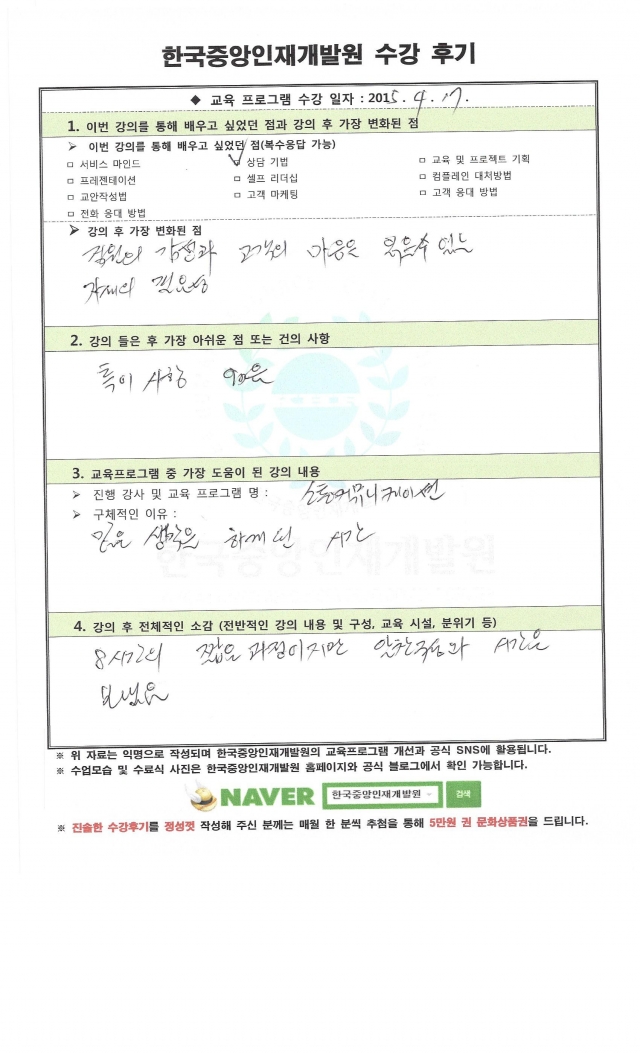 한국중앙인재개발원 수강 후기
◆ 교육 프로그램 수강 일자 : 2015. 4. 17.
1. 이번 강의를 통해 배우고 싶었던 점과 강의 후 가장 변화된 점
➢ 이번 강의를 통해 배우고 싶었던 점(복수응답 가능)
□ 서비스 마인드 □ 상담 기법 □ 교육 및 프로젝트 기획
□ 프레젠테이션 □ 셀프 리더십 □ 컴플레인 대처방법
□ 교안작성법 □ 고객 마케팅 □ 고객 응대 방법
□ 전화 응대 방법
➢ 강의 후 가장 변화된 점
직원의 감정과 고객의 마음을 읽을수 있는
자세의 필요성
2. 강의 들은 후 가장 아쉬운 점 또는 건의 사항
특이 사항 없음
3. 교육프로그램 중 가장 도움이 된 강의 내용
➢ 진행 강사 및 교육 프로그램 명 : 소통커뮤니케이션
➢ 구체적인 이유 :
많은 생각을 하게 된 시간
한국중앙인재개발원
4. 강의 후 전체적인 소감 (전반적인 강의 내용 및 구성, 교육 시설, 분위기 등)
8시간의 짧은 과정이지만 시간을
보냈음
※ 위 자료는 익명으로 작성되며 한국중앙인재개발원의 교육프로그램 개선과 공식 SNS에 활용됩니다.
※ 수업모습 및 수료식 사진은 한국중앙인재개발원 홈페이지와 공식 블로그에서 확인 가능합니다.
NAVER 한국중앙인재개발원 검색
※ 진솔한 수강후기를 정성껏 작성해 주신 분께는 매월 한 분씩 추첨을 통해 5만원 권 문화상품권을 드립니다.